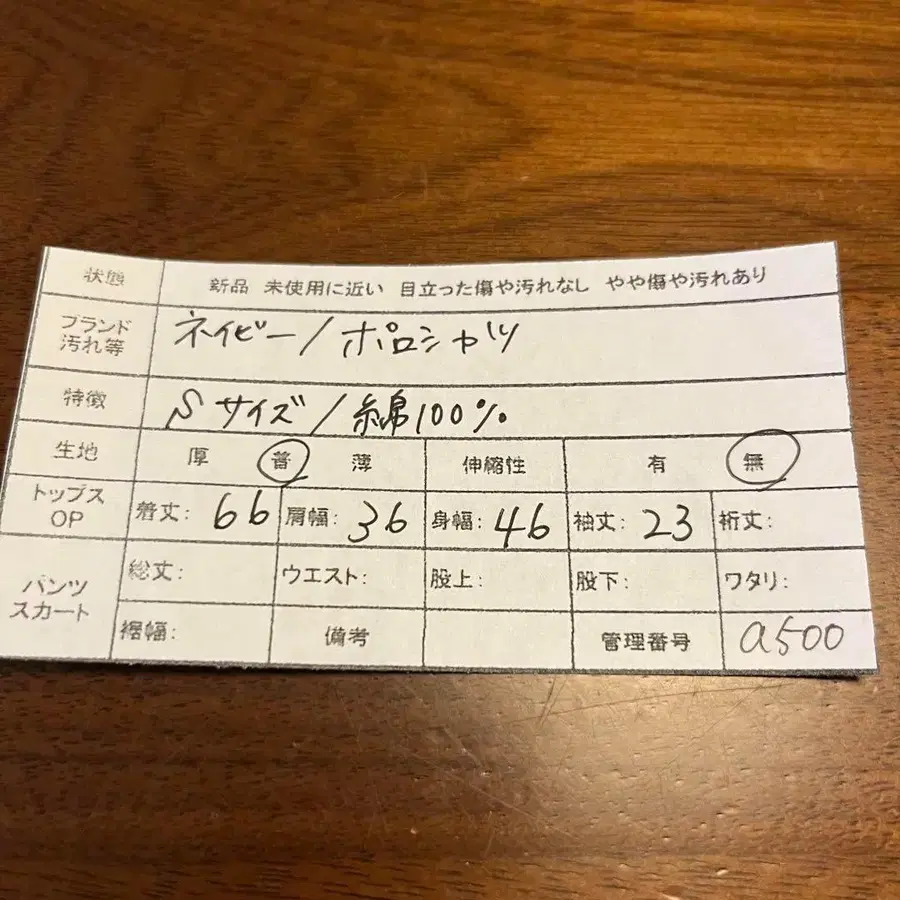 状態 新品 未使用に近い 目立った傷や汚れなし やや傷や汚れあり
ブランド
汚れ等 ネイビー/ポロシャツ
特徴 Sサイズ/綿100%
生地 厚 普 薄 伸縮性 有 無
トップス
OP 着丈: 66 肩幅: 36 身幅: 46 袖丈: 23 裄丈:
パンツ
スカート 総丈: ウエスト: 股上: 股下: ワタリ:
裾幅: 備考 管理番号 a500